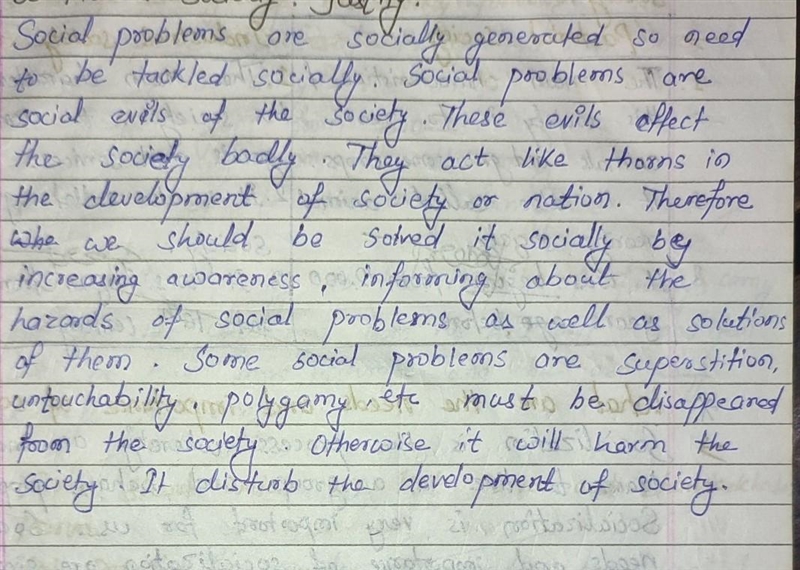 Society. Justify.
Social problems are socially generated so need
to be tackled socially. Social problems are
social evils of the society. These evils effect
the society badly They act like thorns in
the development of society or nation. Therefore
we should be solved it socially by
increasing awareness, informing about the
hazards of social problems as well as solutions
of them. Some social problems are superstition,
untouchability, polygamy, etc must be disappeared
from the society. Otherwise it will harm the
society. It disturb the development of society.